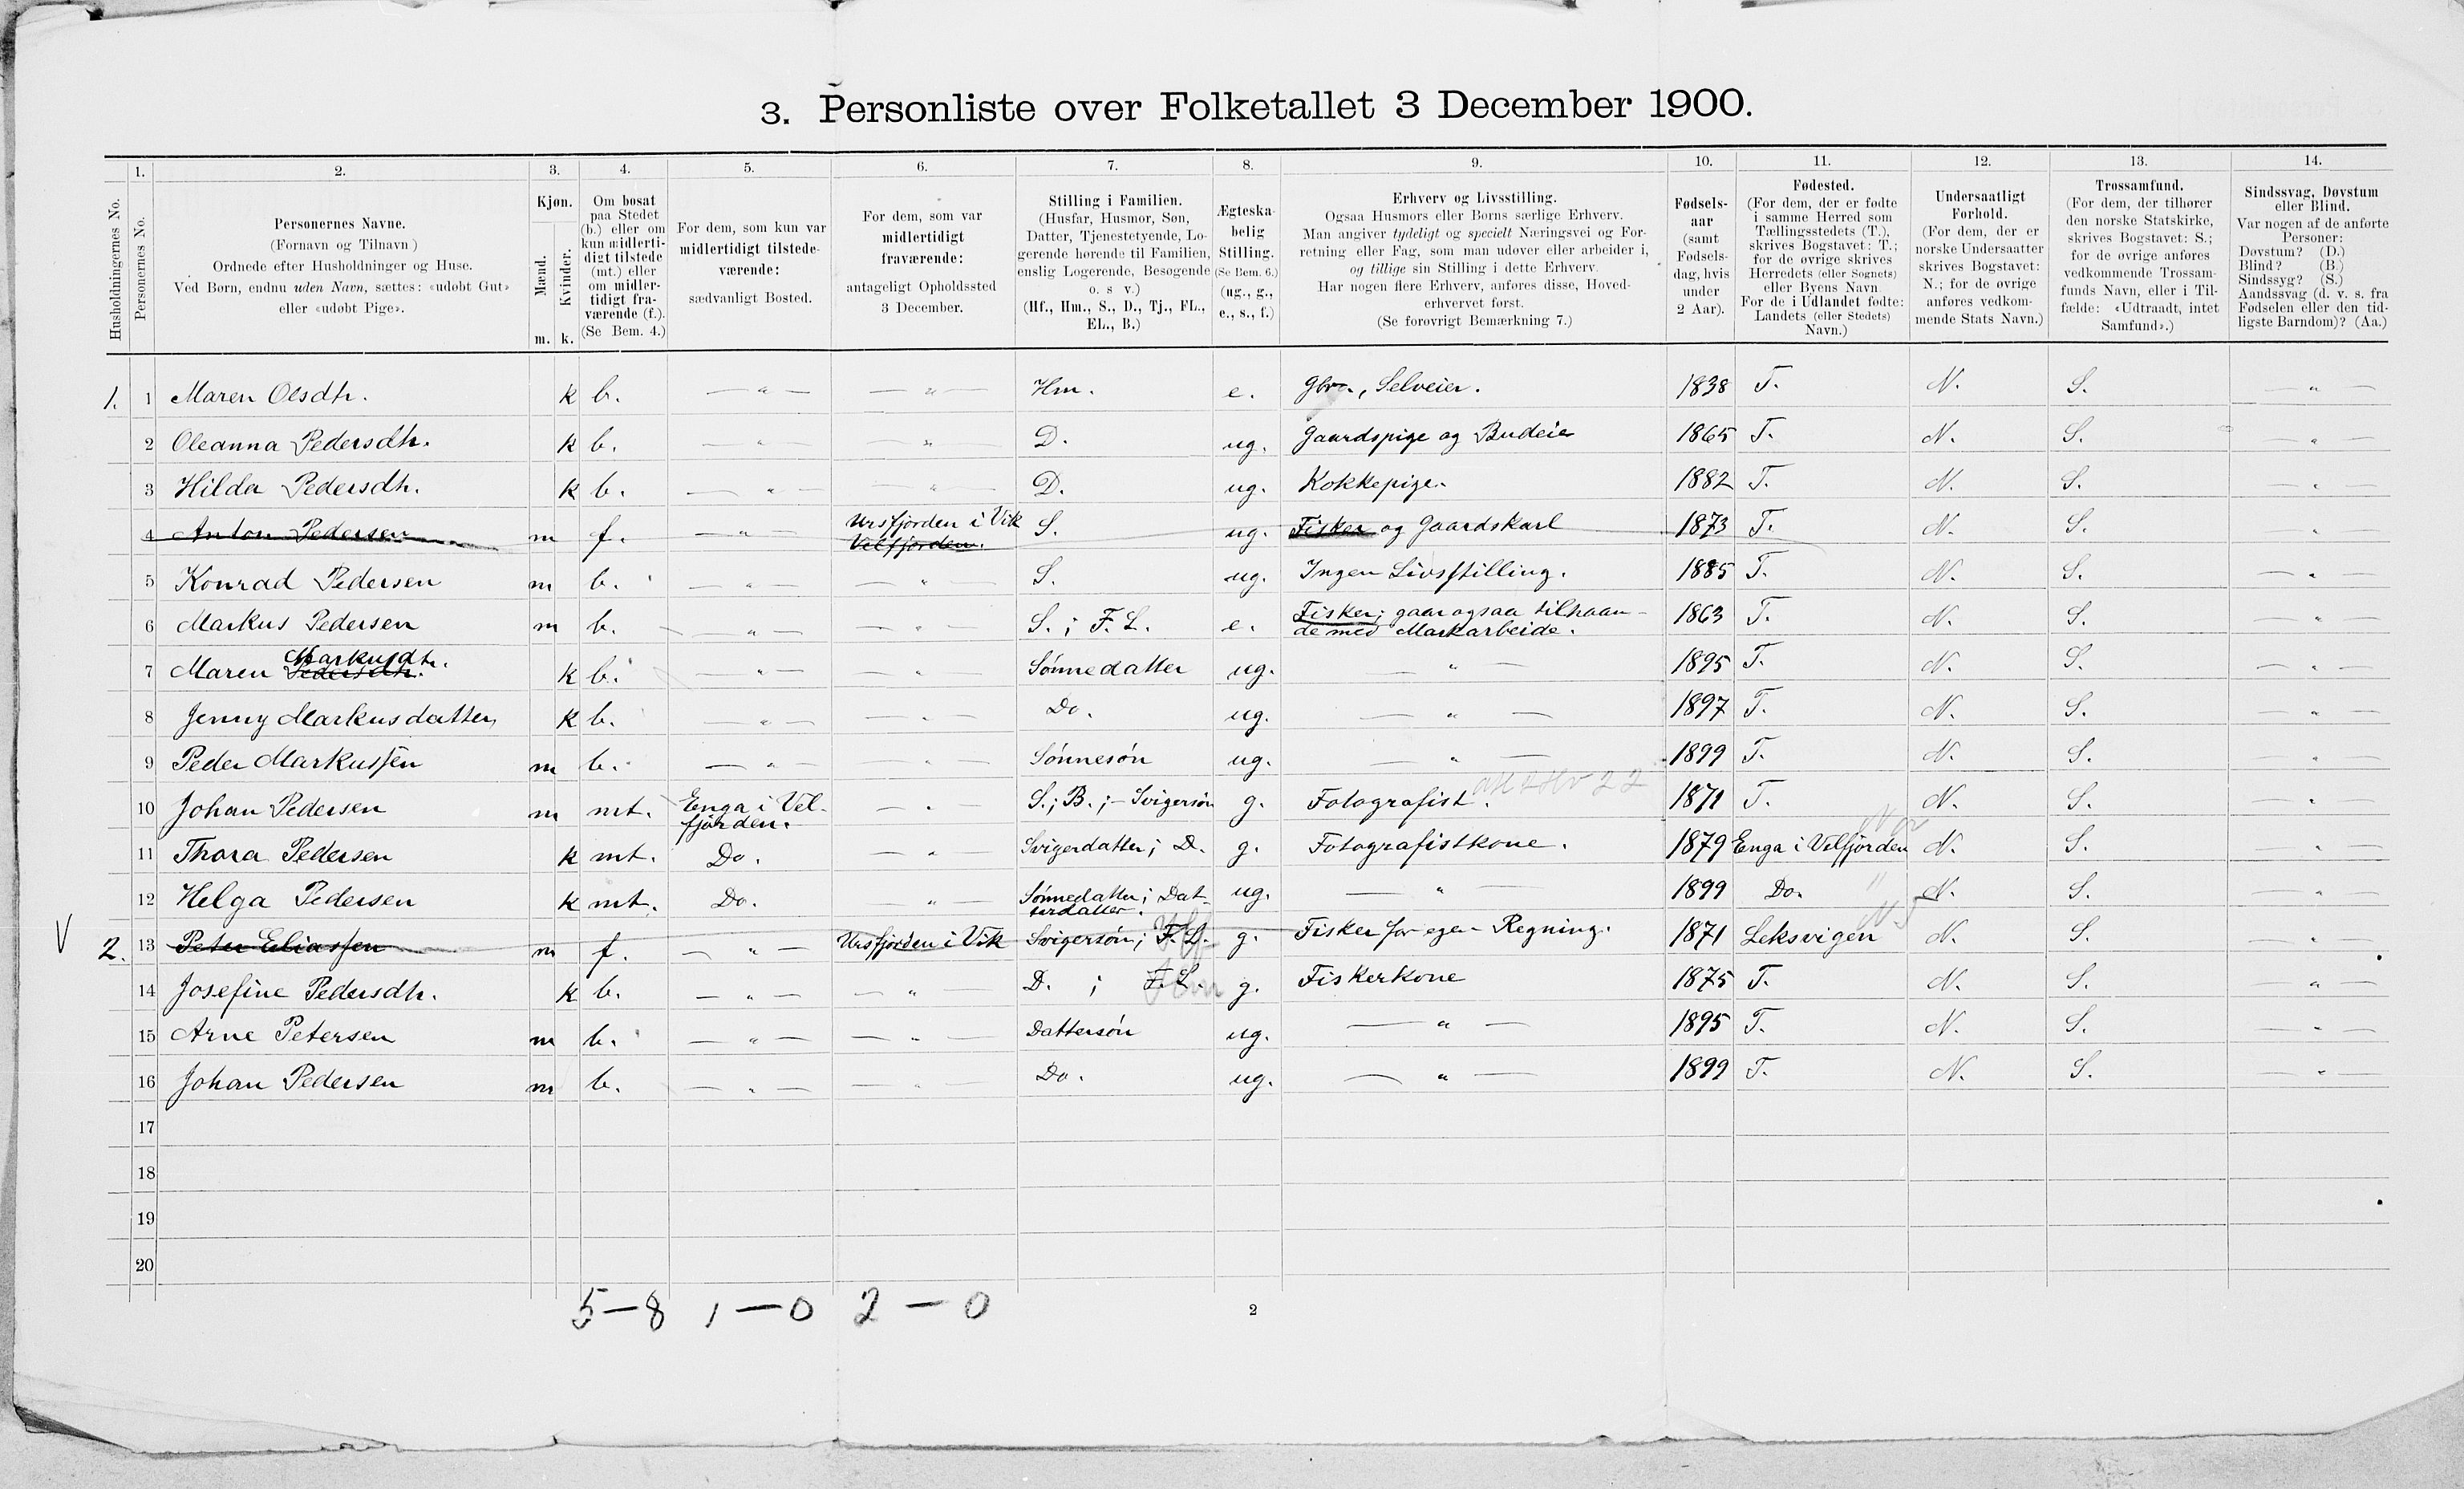 3. Personliste over Folketallet 3 December 1900.
1. 2. 3. 4. 5. 6. 7. 8. 9. 10. 11. 12. 13. 14.
Husholdningernes No.
Personernes No.
Personernes Navne.
(Fornavn og Tilnavn)
Ordnede efter Husholdninger og Huse.
Ved Børn, endnu uden Navn, sættes: «udøbt Gut»
eller «udøbt Pige».
Kjøn.
Mænd.
Kvinder.
m. k.
Om bosat
paa Stedet
(b.) eller om
kun midlerti-
digt tilstede
(mt.) eller
om midler-
tidigt fra-
værende (f.).
(Se Bem. 4.)
For dem, som kun var
midlertidigt tilstede-
værende:
sædvanligt Bosted.
For dem, som var
midlertidigt
fraværende:
antageligt Opholdssted
3 December.
Stilling i Familien.
(Husfar, Husmor, Søn,
Datter, Tjenestetyende, Lo-
gerende hørende til Familien,
enslig Logerende, Besøgende
o. s v.)
(Hf., Hm., S., D., Tj., FL.,
EL., B.)
Ægteska-
belig
Stilling.
(Se Bem. 6.)
(ug., g.,
e., s., f.)
Erhverv og Livsstilling.
Ogsaa Husmors eller Børns særlige Erhverv.
Man angiver tydeligt og specielt Næringsvei og For-
retning eller Fag, som man udøver eller arbeider i,
og tillige sin Stilling i dette Erhverv.
Har nogen flere Erhverv, anføres disse, Hoved-
erhvervet først.
(Se forøvrigt Bemærkning 7.)
Fødsels-
aar
(samt
Fødsels-
dag, hvis
under
2 Aar).
Fødested.
(For dem, der er fødte
i samme Herred som
Tællingsstedets (T.),
skrives Bogstavet: T.;
for de øvrige skrives
Herredets (eller Sognets)
eller Byens Navn
For de i Udlandet fødte:
Landets (eller Stedets)
Navn.)
Undersaatligt
Forhold.
(For dem, der er
norske Undersaatter
skrives Bogstavet:
N.; for de øvrige
anføres vedkom-
mende Stats Navn.)
Trossamfund.
(For dem, der tilhører
den norske Statskirke,
skrives Bogstavet: S.;
for de øvrige anføres
vedkommende Trossam-
funds Navn, eller i Til-
fælde: «Udtraadt, intet
Samfund».)
Sindssvag, Døvstum
eller Blind.
Var nogen af de anførte
Personer:
Døvstum? (D.)
Blind? (B.)
Sindssyg? (S.)
Aandssvag (d. v. s. fra
Fødselen eller den tid-
ligste Barndom)? (Aa.)
1. 1 Maren Olsdtr. k b. — " — — " — Hm. e. Gbr., Selveier. 1838 T. N. S. — " —
2 Oleanna Pedersdtr. k b. — " — — " — D. ug. Gaardspige og Budeie 1865 T. N. S. — " —
3 Hilda Pedersdtr. k b. — " — — " — D. ug. Kokkepige. 1882 T. N. S. — " —
4 Anton Pedersen m f. — " — Ursfjorden i Vik Velfjorden. S. ug. Fisker og Gaardskarl 1873 T. N. S. "
5 Konrad Pedersen m b. — " — — " — S. ug. Ingen Livsstilling. 1885 T. N. S. — " —
6 Markus Pedersen m b. — " — — " — S. ; F. L. e. Fisker; gaar ogsaa tilhaan-
de med Markarbeide. 1863 T. N. S. — " —
7 Maren Pedersdtr. Markusdtr. k b. — " — — " — Sønnedatter ug. — " — 1895 T. N. S. — " —
8 Jenny Markusdatter k b. — " — — " — Do. ug. — " — 1897 T. N. S. — " —
9 Peder Markussen m b. — " — — " — Sønnesøn ug. — " — 1899 T. N. S. — " —
10 Johan Pedersen m mt. Enga i Vel-
fjorden. — " — S.; B.; - Svigersøn g. Fotografist. 1871 T. N. S. — " —
11 Thora Pedersen k mt. Do. — " — Svigerdatter; D. g. Fotografistkone. 1879 Enga i Velfjorden N. S. — " —
12 Helga Pedersen k mt. Do. — " — Sønnedatter; Dat-
terdatter. ug. — " — 1899 Do. N. S. — " —
V 2. 13 Peter Eliassen m f. — " — Ursfjorden i Vik Svigersøn; F. L. g. Fisker for egen Regning. 1871 Leksvigen N. S. — " —
14 Josefine Pedersdtr. k b. — " — — " — D. ; F. L. Hm g. Fiskerkone 1875 T. N. S. — " —
15 Arne Petersen m b. — " — — " — Dattersøn ug. — " — 1895 T. N. S. — " —
16 Johan Pedersen m b. — " — — " — Do. ug. — " — 1899 T. N. S. — " —
17
18
19
20
5—8 1—0 2—0
2